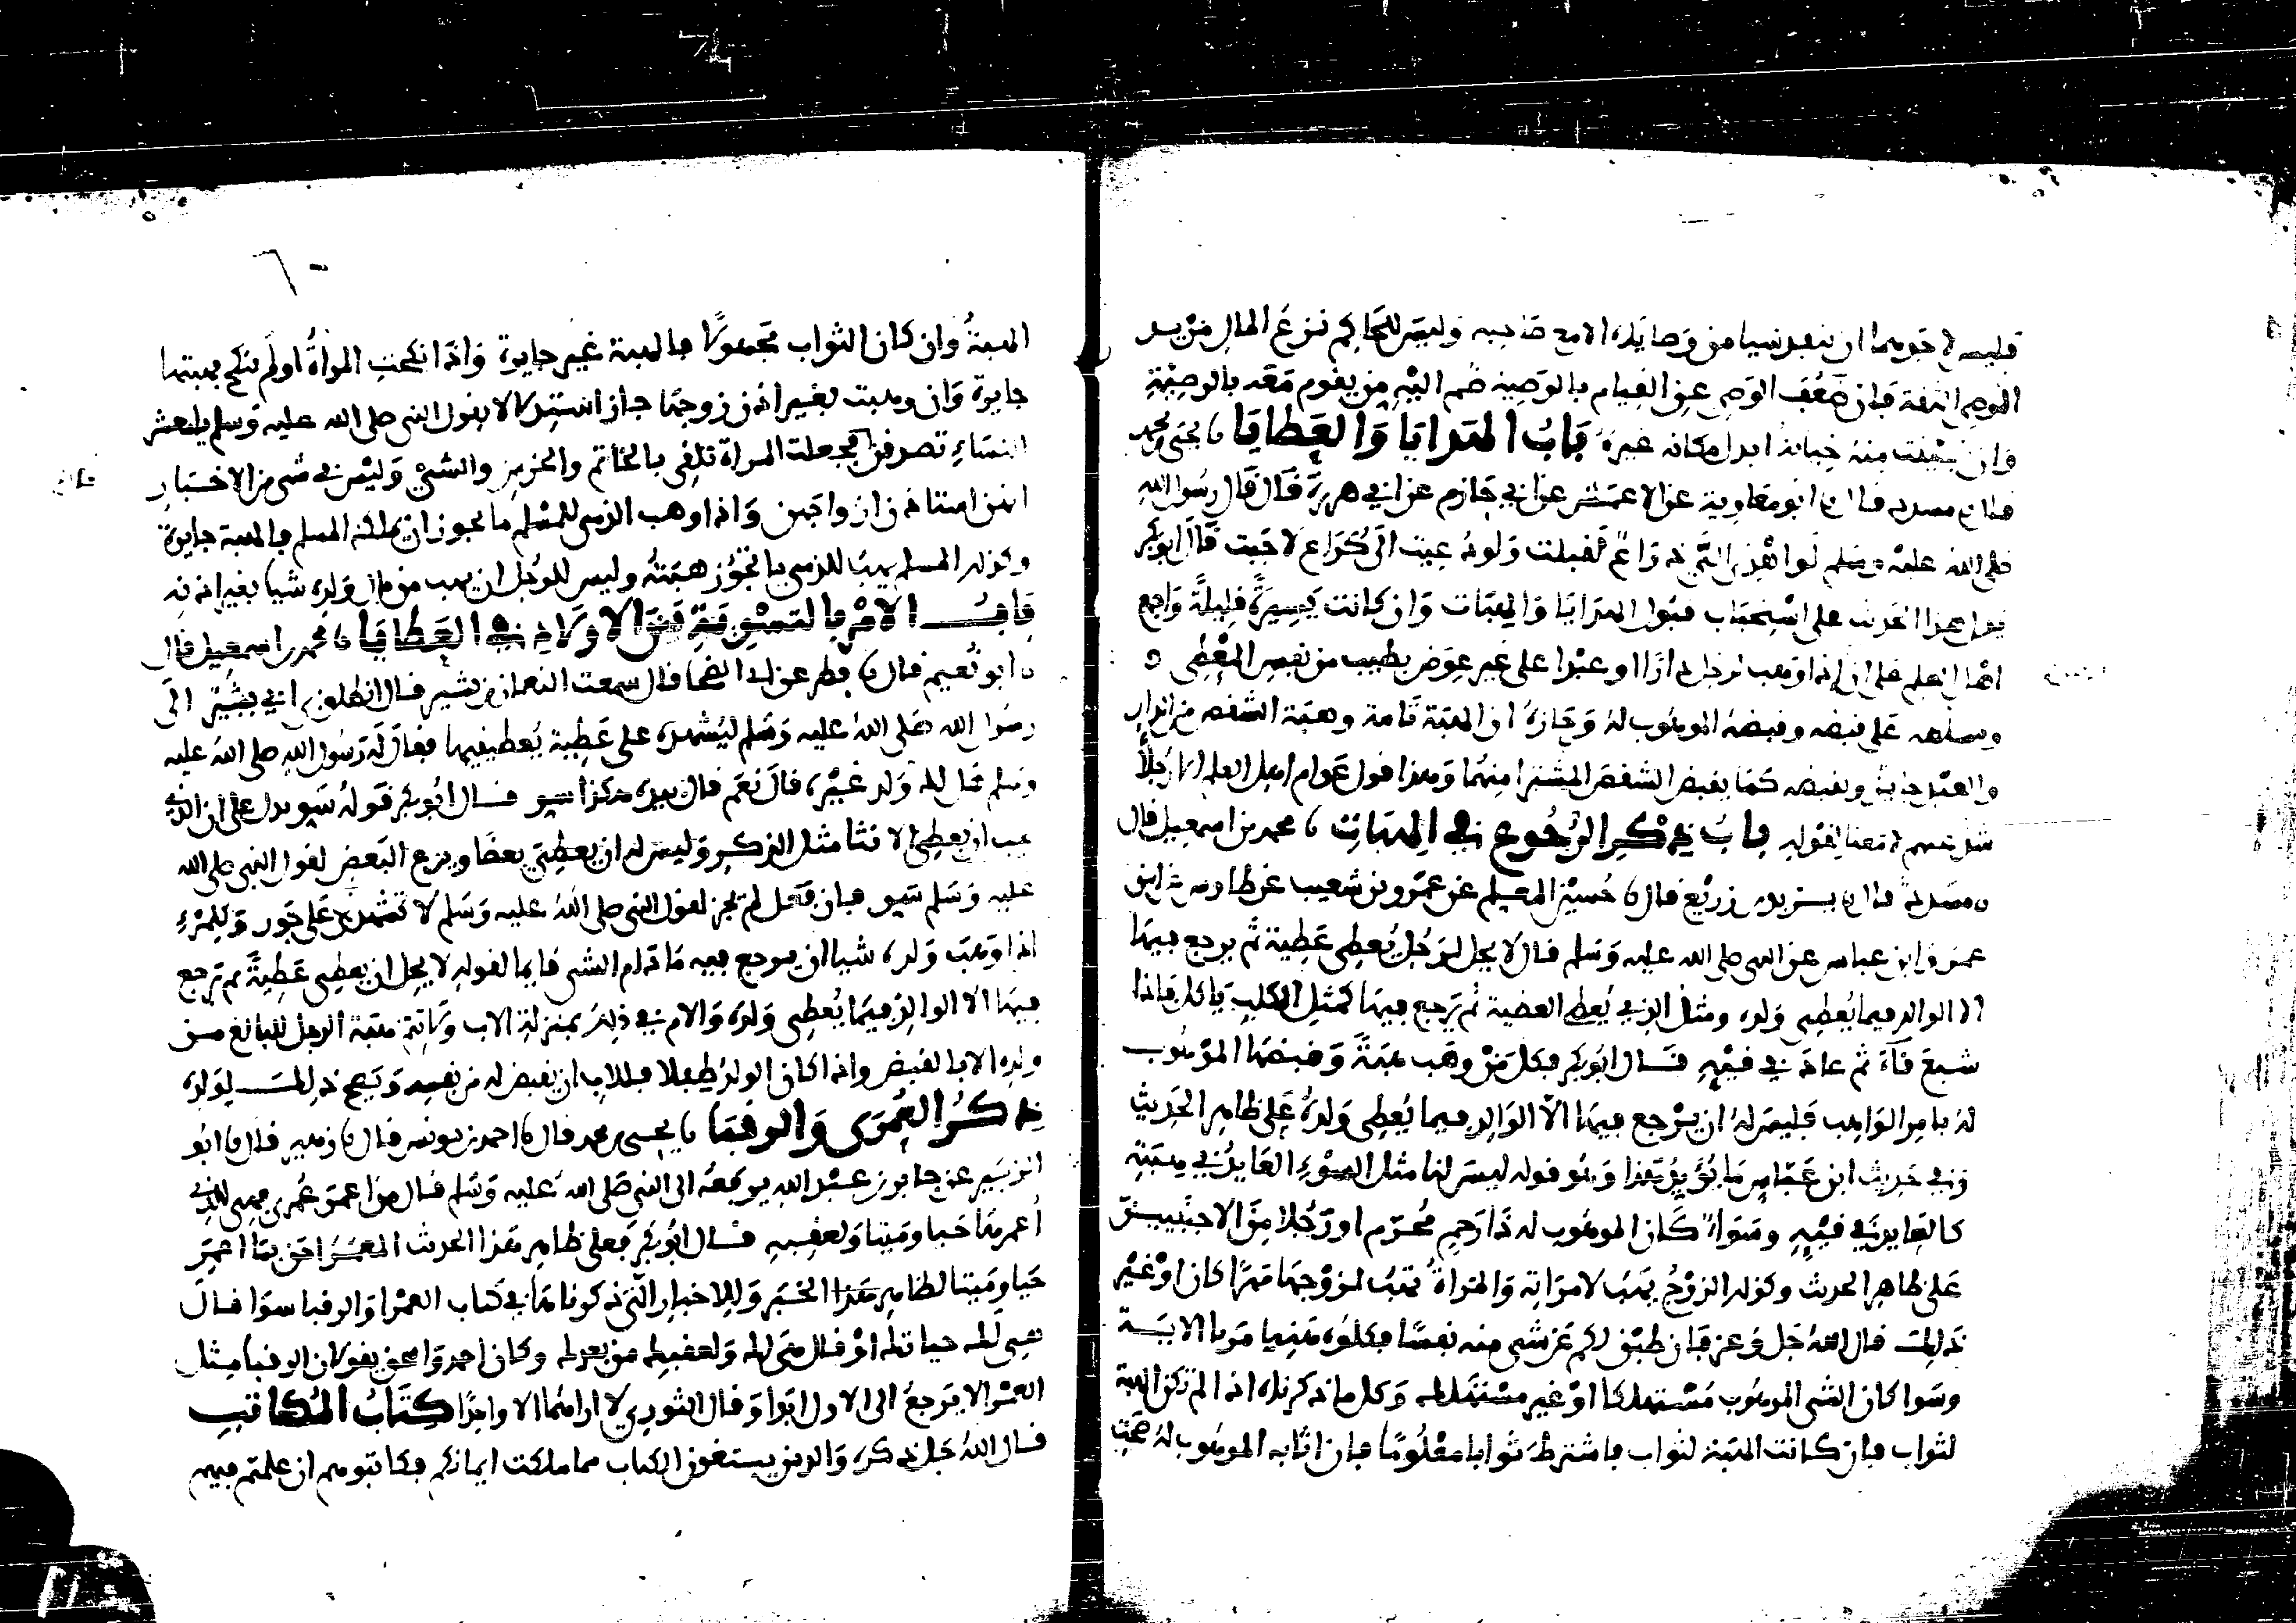 فليس لاحدهما ان ينفد شيا من وصاياه الا مع صاحبه وليس للحاكم نزع المال من يد
الوصي الثقة فان ضعف الوصي عن القيام بالوصية ضم اليه من يقوم معه بالوصية
وان منه خيانة ابدل مكانه غيره باب الهدايا والعطايا نا يحيى بن محمد
قال نا مسدد قال نا ابو معاوية عن الاعمش عن ابي حازم عن ابي هريرة قال قال رسول الله
صلى الله عليه وسلم لو اهدي الي ذراع لقبلت ولو دعيت الى كراع لاجبت قال ابو بكر
يدل هذا الحديث على استحباب قبول الهدايا والهبات وان كانت يسيرة قليلة واجمع
اهل العلم على ان اذا وهب لرجل دارا او عبدا على غير عوض بطيب من نفس المعطي
على قبضه وقبضه الموهوب له وحازه ان الهبة تامة وهبة الشقص من الدار
والعبد جايز ويقبضه كما يقبض الشقص المشترا منهما وهذا قول عوام اهل العلم الا رجلا
شذ عنهم لا معنا لقوله باب ذكر الرجوع في الهبات نا محمد بن اسمعيل قال
نا مسدد قال نا يزيد بن زريع قال نا حسين المعلم عن عمرو بن شعيب عن طاوس عن ابن
عمر وابن عباس عن النبي صلى الله عليه وسلم قال لا يحل لرجل يعطي عطية ثم يرجع فيها
الا الوالد فيما يعطي ولده ومثل الذي يعطي العطية ثم يرجع فيها كمثل الكلب ياكل فاذا
شبع قاء ثم عاد في قيئه قال ابو بكر فكل من وهب هبة وقبضها الموهوب
له بامر الواهب فليس له ان يرجع فيها الا الوالد فيما يعطي ولده على ظاهر الحديث
وفي حديث ابن عباس ما يؤيد هذا وهو قوله ليس لنا مثل السوء العايد في هبته
كالعايد في قيئه وسواء كان الموهوب له ذا رحم محرم او رجلا من الاجنبيين
على ظاهر الحديث وكذلك الزوج يهب لامراته والمراة تهب لزوجها مهرا كان او غير
ذلك قال الله جل وعز فان طبن لكم عن شي منه نفسا فكلوه هنيا مريا الاية
وسوا كان الشي الموهوب مستهلكا او غير مستهلك وكل ما ذكرناه اذا لم تكن الهبة
لثواب فان كانت الهبة لثواب فاشترط ثوابا معلوما فان اثابه الموهوب له صحت
الهبة وان كان الثواب مجهولا فالهبة غير جايزة واذا نكحت المراة او لم تنكح فهبتها
جايزة وان وهبت بغير اذن زوجها جاز استدلالا بقول النبي صلى الله عليه وسلم يا معشر
النساء تصدقن فجعلت المراة تلقي بالخاتم والخرص والشي وليس في شي من الاخبار
انهن استاذن ازواجهن واذا وهب الذمي للمسلم ما يجوز ان يملكه المسلم فالهبة جايزة
وكذلك المسلم يهب للذمي ما تجوز هبته وليس للرجل ان يهب من مال ولده شيا بغير اذنه
باب الامر بالتسوية بين الاولاد في العطايا نا محمد بن اسمعيل قال
نا ابو نعيم قال نا فطر عن ابي الضحا قال سمعت النعمان بن بشير قال انطلق بي ابي بشير الى
رسول الله صلى الله عليه وسلم ليشهده على عطية يعطينيها فقال له رسول الله صلى الله عليه
وسلم هل لك ولد غيره قال نعم قال بيده هكذا سو قال ابو بكر قوله سو يدل على ان الذي
يجب ان يعطي الانثا مثل الذكر وليس له ان يعطي بعضا ويدع البعض لقول النبي صلى الله
عليه وسلم سو فان فعل لم يجز لقول النبي صلى الله عليه وسلم لا تشهدني على جور وللمرء
اذا وهب ولده شيا ان يرجع فيه ما دام الشي قايما لقوله لا يحل ان يعطي عطية ثم ترجع
فيها الا الوالد فيما يعطي ولده والام في ذلك بمنزلة الاب ولا تتم هبة الرجل للبالغ من
ولده الا بالقبض واذا كان الولد طفلا فللاب ان يقبض له من نفسه ويصح ذلك لولده
ذكر العمرى والرقبا نا يحيى بن محمد قال نا احمد بن يونس قال نا زهير قال نا ابو
الزبير عن جابر بن عبد الله يرفعه الى النبي صلى الله عليه وسلم قال من اعمر عمرى فهي للذي
اعمرها حيا وميتا ولعقبه قال ابو بكر فعلى ظاهر هذا الحديث المعمر احق بما اعمر
حيا وميتا لظاهر هذا الخبر وللاخبار التي ذكرناها في كتاب العمرا والرقبا سوا قال
هي لك حياتك او قال هي لك ولعقبك من بعدك وكان احمد واسحق يقولان الرقبا مثل
العمرا لا يرجع الى الاول ابدا وقال الثوري لا اراهما الا واحدا كتاب المكاتب
قال الله جل ذكره والذين يبتغون الكتاب مما ملكت ايمانكم فكاتبوهم ان علمتم فيهم